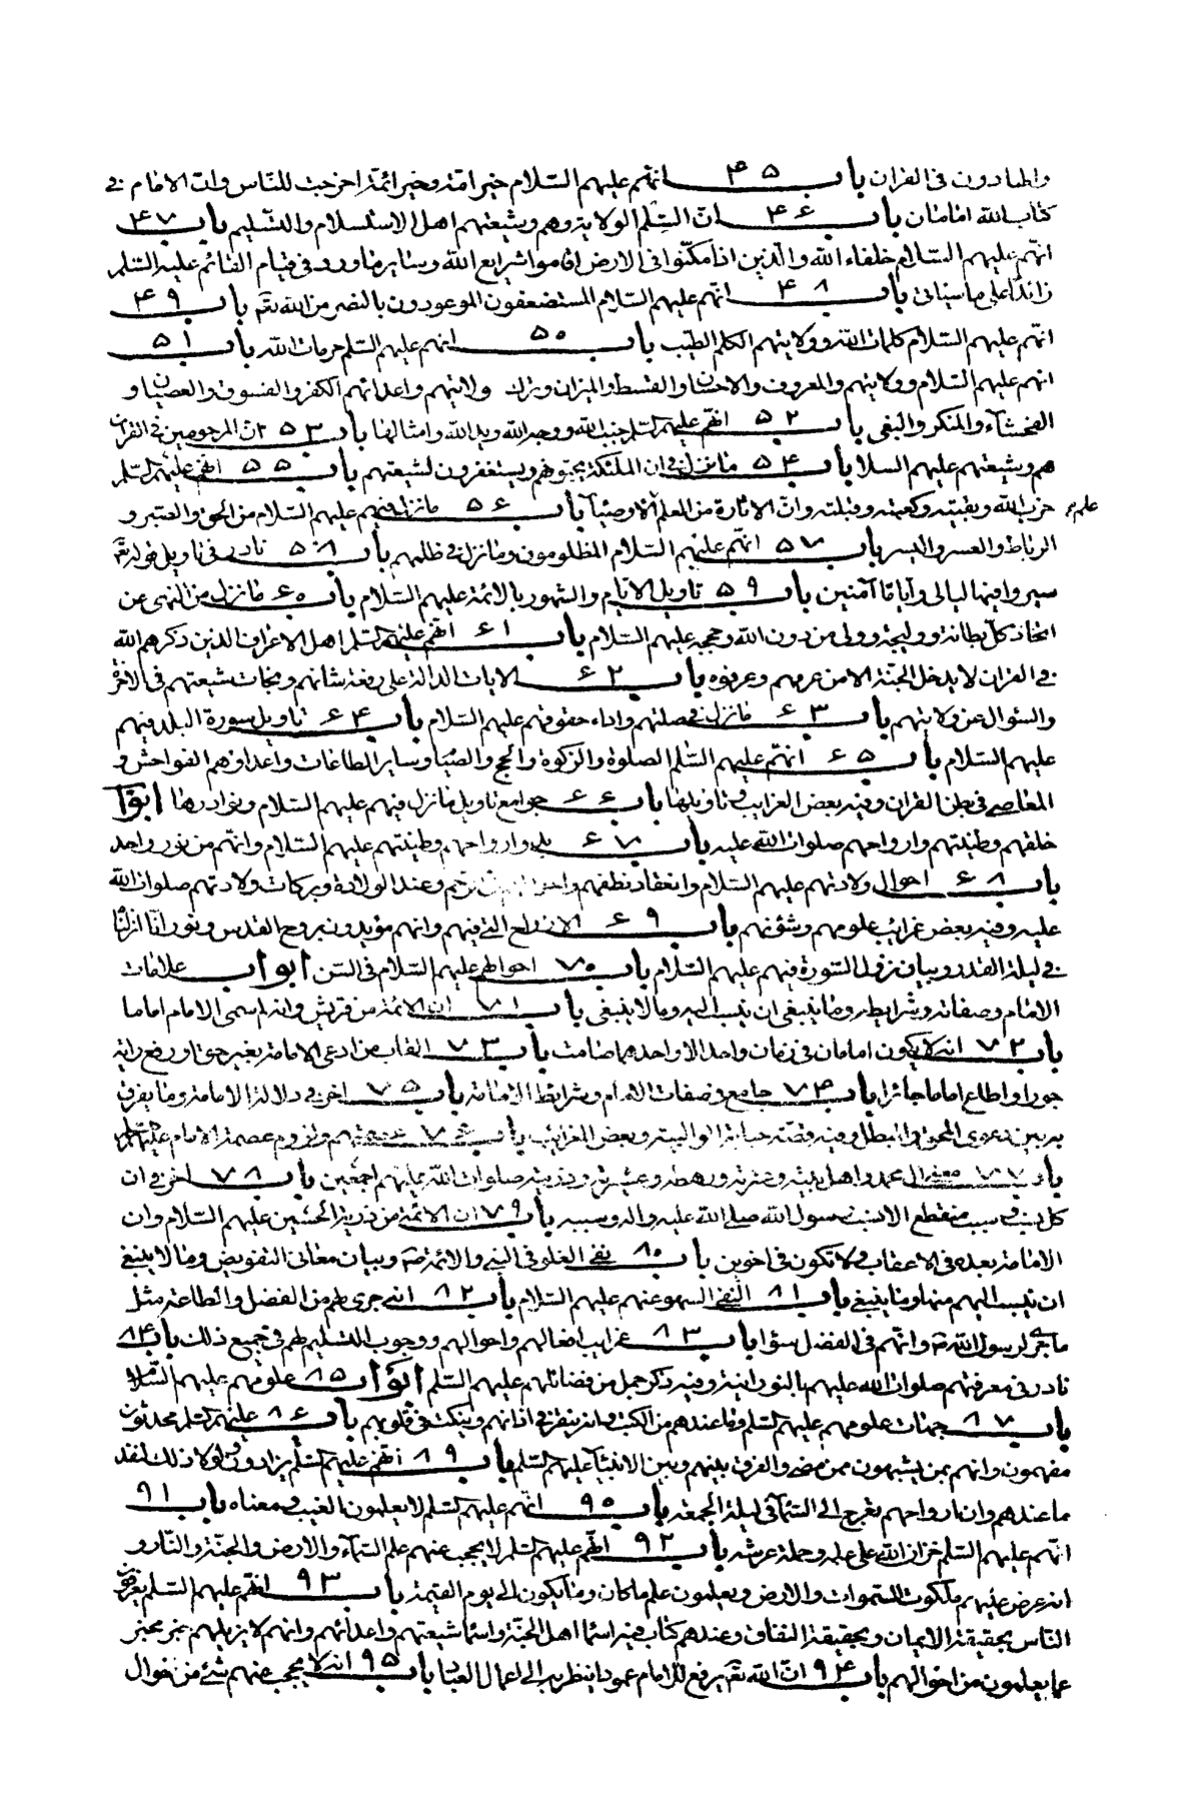 والصادقون فى القران باب ۴۵ انهم عليهم السلام خير امة وخير ائمة اخرجت للناس وان الامام فى
كتاب الله امامان باب ۴۶ ان السلم الولاية وهم وشيعتهم اهل الاستسلام والتسليم باب ۴۷
انهم عليهم السلام خلفاء الله والذين اذا مكنوا فى الارض اقاموا شرايع الله وساير ما ورد فى قيام القائم عليه السلم
زائدا على ما سياتى باب ۴۸ انهم عليهم السلام المستضعفون الموعودون بالنصر من الله تعم باب ۴۹
انهم عليهم السلام كلمات الله وولايتهم الكلم الطيب باب ۵۰ انهم عليهم السلم حرمات الله باب ۵۱
انهم عليهم السلام وولايتهم والمعروف والاحسان والقسط والميزان وترك ولايتهم واعدائهم الكفر والفسوق والعصيان و
الفحشاء والمنكر والبغى باب ۵۲ انهم عليهم السلم جنب الله ووجه الله ويد الله وامثالها باب ۵۳ ان المرحومين فى القران
هم وشيعتهم عليهم السلا باب ۵۴ ما نزل فى ان الملئكة يحبوهم ويستغفرون لشيعتهم باب ۵۵ انهم عليهم السلم
حزب الله وبقيته وكعبته وقبلته وان الاثارة من العلم الاوصياء باب ۵۶ ما نزل فيهم عليهم السلام من الحق والصبر و
الرباط والعسر واليسر باب ۵۷ انهم عليهم السلام المظلومون وما نزل فى ظلمهم باب ۵۸ نادر فى تاويل قوله تعم
سيروا فيها ليالى واياما آمنين باب ۵۹ تاويل الايام والشهور بالائمة عليهم السلام باب ۶۰ ما نزل من النهى عن
اتخاذ كل بطانة ووليجة وولى من دون الله وحججه عليهم السلام باب ۶۱ انهم عليهم السلم اهل الاعراف الذين ذكرهم الله
فى القران لا يدخل الجنة الا من عرفهم وعرفوه باب ۶۲ الايات الدالة على رفعة شانهم ونجات شيعتهم فى الاخرة
والسؤال عن ولايتهم باب ۶۳ ما نزل فى صلتهم واداء حقوقهم عليهم السلام باب ۶۴ تاويل سورة البلد فيهم
عليهم السلام باب ۶۵ انهم عليهم السلم الصلوة والزكوة والحج والصيام وساير الطاعات واعداؤهم الفواحش و
المعاصى فى بطن القران وفيه بعض الغرايب وتاويلها باب ۶۶ جوامع تاويل ما نزل فيهم عليهم السلام ونوادرها ابواب
خلقهم وطينتهم وارواحهم صلوات الله عليه باب ۶۷ بدو ارواحهم وطينتهم عليهم السلام وانهم من نور واحد
باب ۶۸ احوال ولادتهم عليهم السلام وانعقاد نطفهم واحوالهم فى الرحم وعند الولادة وبركات ولادتهم صلوات الله
عليه وفيه بعض غرائب علومهم وشؤنهم باب ۶۹ الارواح التى فيهم وانهم مؤيدون بروح القدس ونور انا انزلنا
فى ليلة القدر وبيان نزول السورة فيهم عليهم السلام باب ۷۰ احوالهم عليهم السلام فى السن ابواب علامات
الامام وصفاته وشرايطه وما ينبغى ان ينسب اليه وما لا ينبغى باب ۷۱ ان الائمة من قريش وانه لم سمى الامام اماما
باب ۷۲ انه لا يكون امامان فى زمان واحد الا واحدهما صامت باب ۷۳ العقاب من ادعى الامامة بغير حق او رفع راية
جور او اطاع اماما جائرا باب ۷۴ جامع فى صفات الامام وشرائط الامامة باب ۷۵ اخر فى دلالة الامامة وما يفرق
به بين دعوى المحق والمبطل وفيه قصة حبابة الوالبية وبعض الغرائب باب ۷۶ عصمتهم ولزوم عصمة الامام عليهم السلم
باب ۷۷ معنى ال محمد واهل بيته وعترته ورهطه وعشيرته وذريته صلوات الله عليهم اجمعين باب ۷۸ اخر فى ان
كل نسب وسبب منقطع الا نسب رسول الله صلى الله عليه واله وسببه باب ۷۹ ان الائمة من ذرية الحسين عليهم السلام وان
الامامة بعده فى الاعقاب ولا تكون فى اخوين باب ۸۰ نفى الغلو فى النبى والائمة ص وبيان معانى التفويض وما لا ينبغى
ان ينسب اليهم منها وما ينبغى باب ۸۱ النفى السهو عنهم عليهم السلام باب ۸۲ انه جرى لهم من الفضل والطاعة مثل
ما جرى لرسول الله ص وانهم فى الفضل سواء باب ۸۳ غرايب افعالهم واحوالهم ووجوب التسليم لهم فى جميع ذلك باب ۸۴
نادر فى معرفتهم صلوات الله عليهم بالنورانية وفيه ذكر جمل من فضائلهم عليهم السلم ابواب ۸۵ علومهم عليهم السلام
باب ۸۷ جهات علومهم عليهم السلم وما عندهم من الكتب وانه ينقر فى اذانهم وينكت فى قلوبهم باب ۸۶ عليهم السلم محدثون
مفهمون وانهم بمن يشبهون ممن مضى والفرق بينهم وبين الانبياء عليهم السلم باب ۸۹ انهم عليهم السلم يزادون ولولا ذلك لنفد
ما عندهم وان ارواحهم تعرج الى السماء فى ليلة الجمعة باب ۹۰ انهم عليهم السلم لا يعلمون الغيب ومعناه باب ۹۱
انهم عليهم السلم خزان الله على علمه وحملة عرشه باب ۹۲ انهم عليهم السلم لا يحجب عنهم علم السماء والارض والجنة والنار و
انه عرض عليهم ملكوت السموات والارض ويعلمون علم ما كان وما يكون الى يوم القيمة باب ۹۳ انهم عليهم السلم يعرفون
الناس بحقيقة الايمان وبحقيقة النفاق وعندهم كتاب فيه اسماء اهل الجنة واسماء شيعتهم واعدائهم وانهم لا يزيلهم خبر مخبر
عما يعلمون من احوالهم باب ۹۴ ان الله تعم يرفع للامام عمودا ينظر به الى اعمال العباد باب ۹۵ انه لا يحجب عنهم شئ من احوال